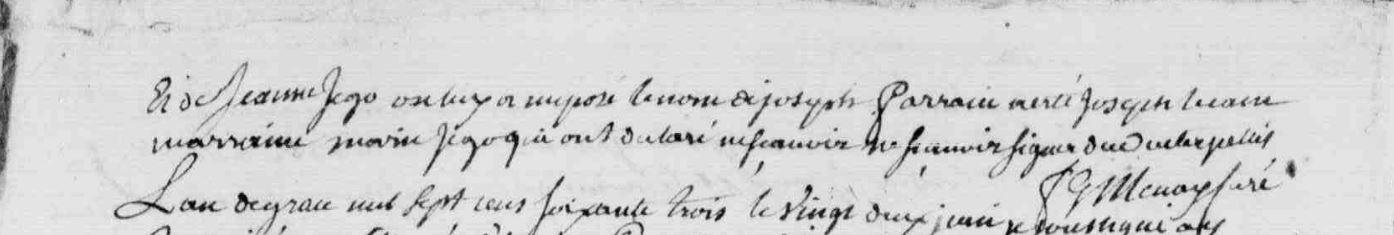 Et de Jeanne Jego on luy a imposé le nom de joseph Parrain a esté Joseph
marraine marie Jego qui ont declaré ne scauoir ne scauoir signer de ce interpellés
curé
L'an de grace mil sept cens soixante trois le vingt deux juin je soussigné